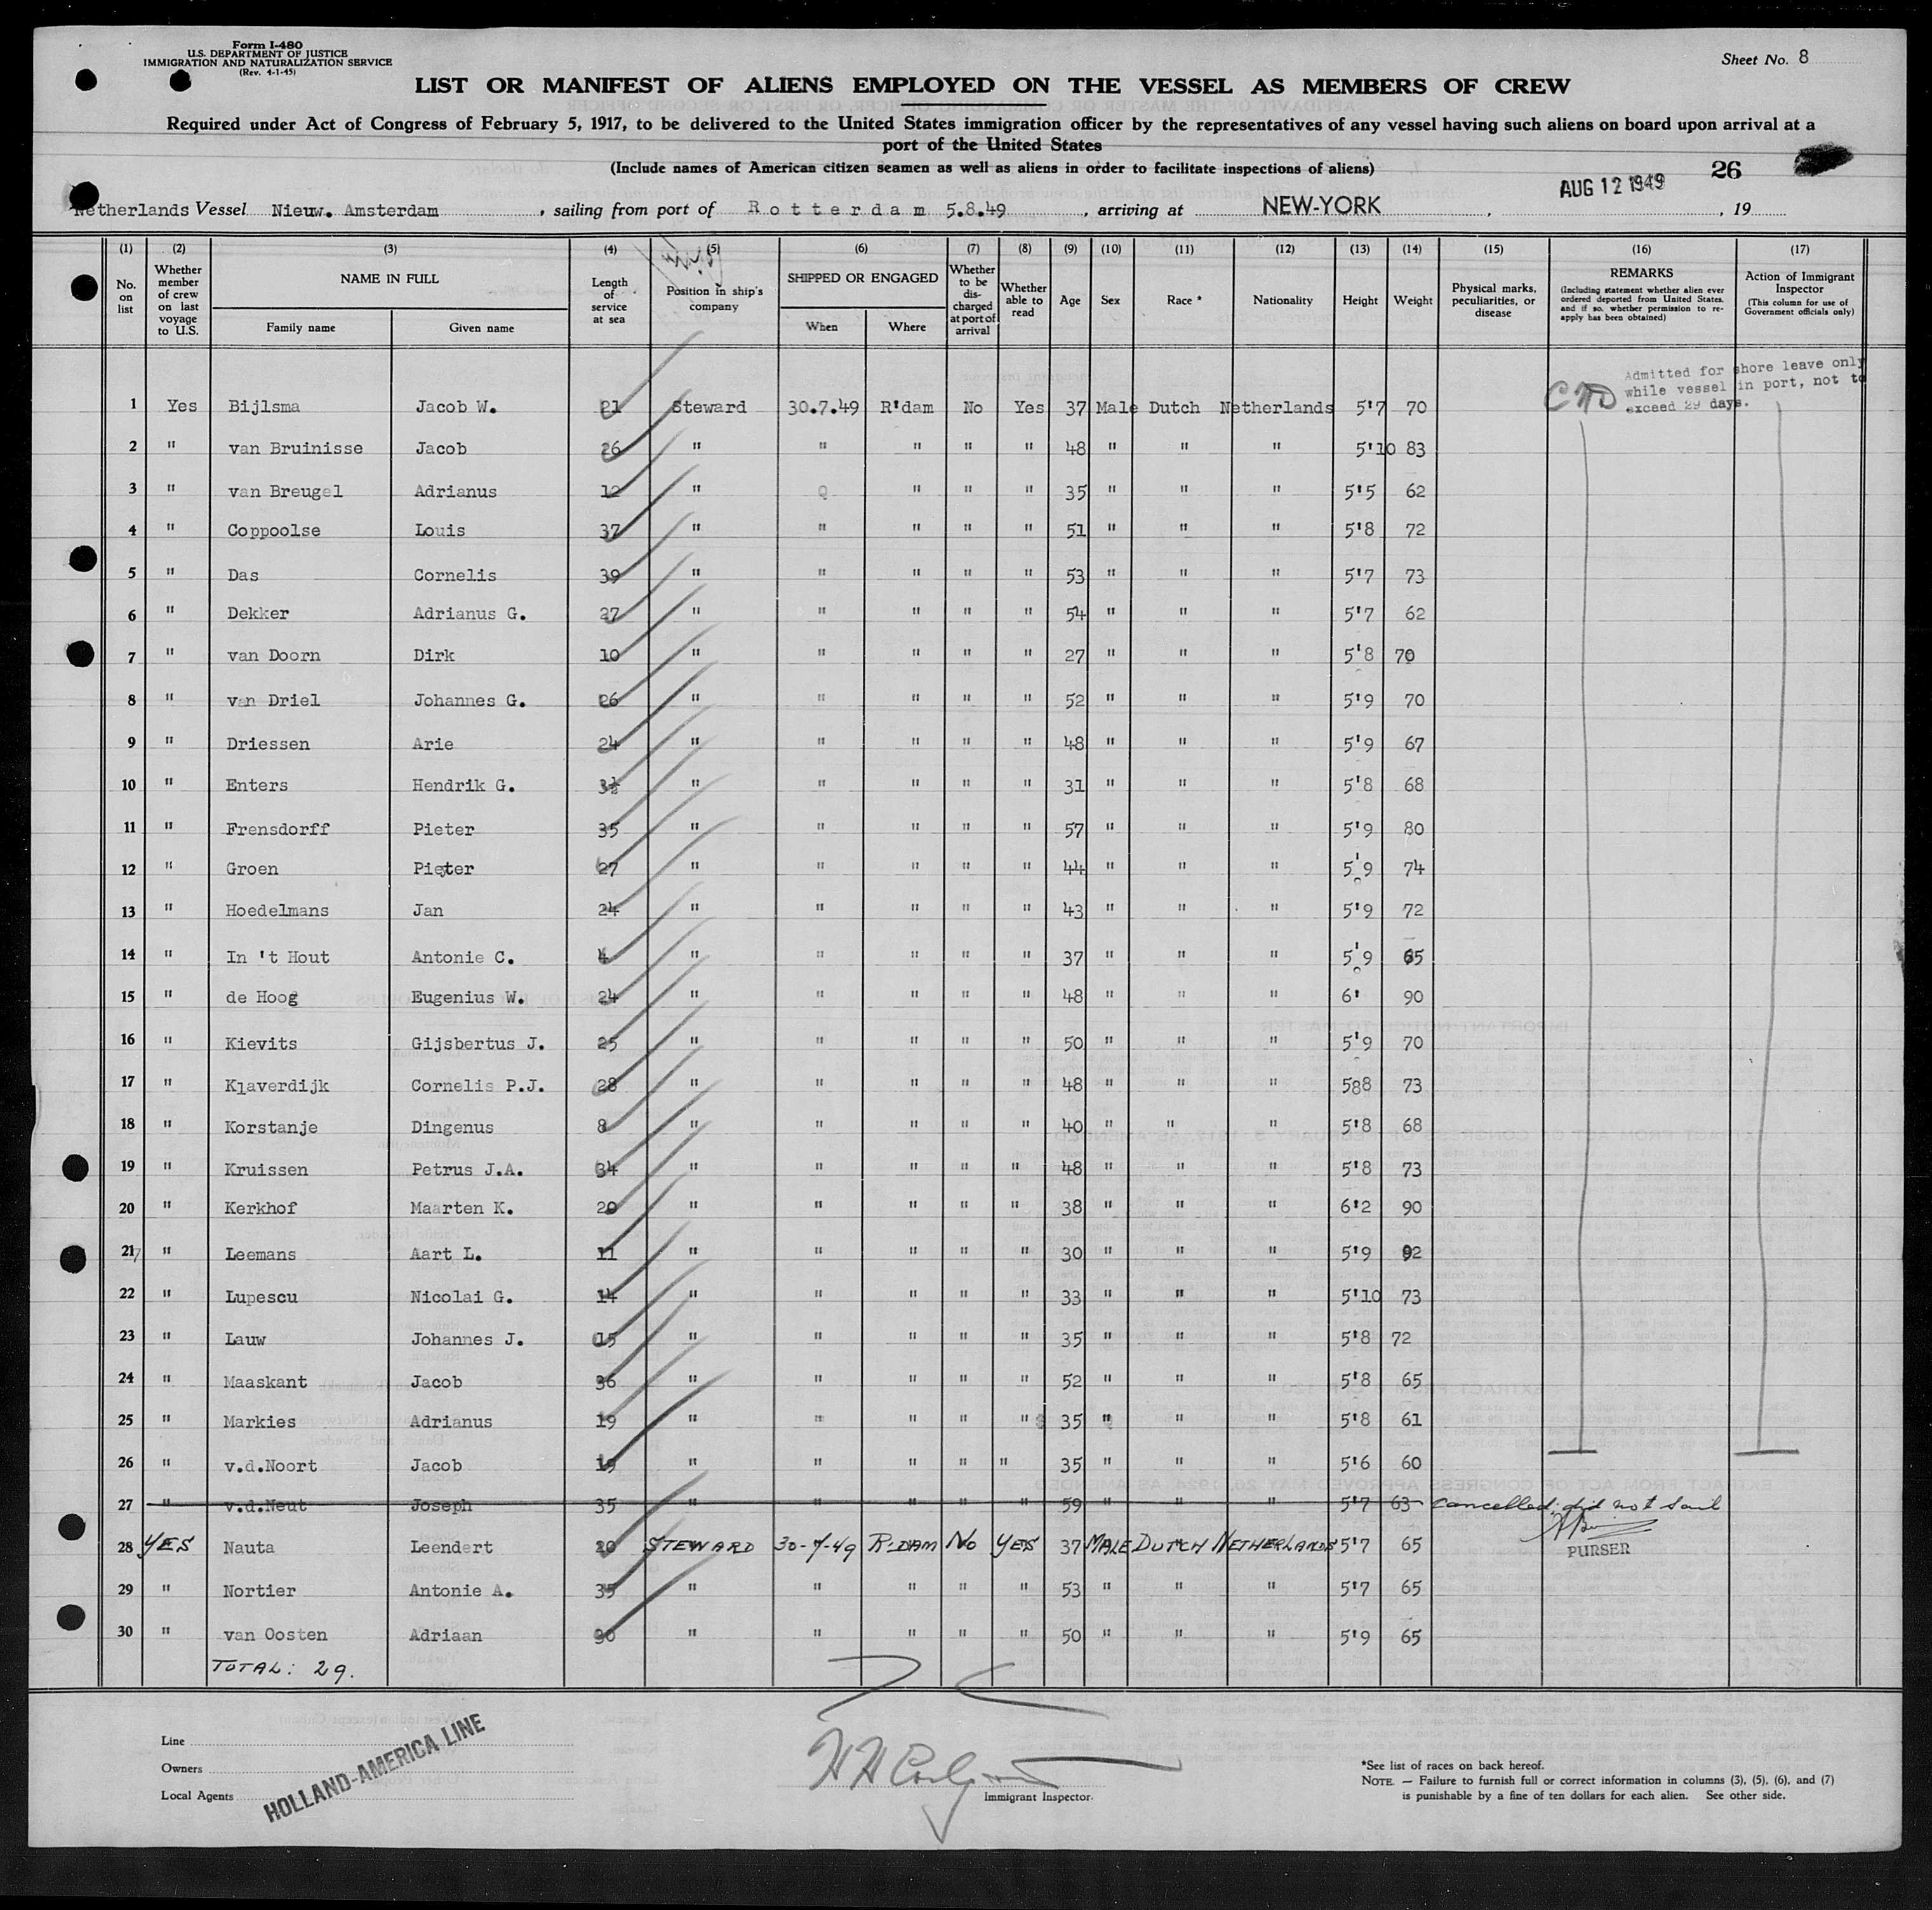 Form I-480
U.S. DEPARTMENT OF JUSTICE
IMMIGRATION AND NATURALIZATION SERVICE
(Rev. 4-1-45)
Sheet No. 8
LIST OR MANIFEST OF ALIENS EMPLOYED ON THE VESSEL AS MEMBERS OF CREW
Required under Act of Congress of February 5, 1917, to be delivered to the United States immigration officer by the representatives of any vessel having such aliens on board upon arrival at a
port of the United States
(Include names of American citizen seamen as well as aliens in order to facilitate inspections of aliens)
26
AUG 12 1949
Netherlands Vessel Nieuw. Amsterdam , sailing from port of Rotterdam 5.8.49 , arriving at NEW-YORK , , 19
(1) (2) (3) (4) (5) (6) (7) (8) (9) (10) (11) (12) (13) (14) (15) (16) (17)
No. on list
Whether member of crew on last voyage to U.S.
NAME IN FULL
Family name
Given name
Length of service at sea
Position in ship's company
SHIPPED OR ENGAGED
When
Where
Whether to be discharged at port of arrival
Whether able to read
Age
Sex
Race *
Nationality
Height
Weight
Physical marks, peculiarities, or disease
REMARKS
(Including statement whether alien ever ordered deported from United States, and if so, whether permission to reapply has been obtained)
Action of Immigrant Inspector
(This column for use of Government officials only)
Admitted for shore leave only
while vessel in port, not to
exceed 29 days.
1 Yes Bijlsma Jacob W. 21 Steward 30.7.49 R'dam No Yes 37 Male Dutch Netherlands 5'7 70
2 " van Bruinisse Jacob 26 " " " " " 48 " " " 5'10 83
3 " van Breugel Adrianus 12 " " " " 35 " " " 5'5 62
4 " Coppoolse Louis 37 " " " " " 51 " " " 5'8 72
5 " Das Cornelis 39 " " " " " 53 " " " 5'7 73
6 " Dekker Adrianus G. 27 " " " " " 54 " " " 5'7 62
7 " van Doorn Dirk 10 " " " " " 27 " " " 5'8 70
8 " van Driel Johannes G. 26 " " " " " 52 " " " 5'9 70
9 " Driessen Arie 24 " " " " " 48 " " " 5'9 67
10 " Enters Hendrik G. 3½ " " " " " 31 " " " 5'8 68
11 " Frensdorff Pieter 35 " " " " " 57 " " " 5'9 80
12 " Groen Pieter 27 " " " " " 44 " " " 5'9 74
13 " Hoedelmans Jan 24 " " " " " 43 " " " 5'9 72
14 " In 't Hout Antonie C. 4 " " " " " 37 " " " 5'9 65
15 " de Hoog Eugenius W. 24 " " " " " 48 " " " 6' 90
16 " Kievits Gijsbertus J. 25 " " " " " 50 " " " 5'9 70
17 " Klaverdijk Cornelis P.J. 28 " " " " " 48 " " " 588 73
18 " Korstanje Dingenus 8 " " " " " 40 " " " 5'8 68
19 " Kruissen Petrus J.A. 34 " " " " " 48 " " " 5'8 73
20 " Kerkhof Maarten K. 20 " " " " " 38 " " " 6'2 90
21 " Leemans Aart L. 11 " " " " " 30 " " " 5'9 92
22 " Lupescu Nicolai G. 14 " " " " " 33 " " " 5'10 73
23 " Lauw Johannes J. 15 " " " " " 35 " " " 5'8 72
24 " Maaskant Jacob 36 " " " " " 52 " " " 5'8 65
25 " Markies Adrianus 19 " " " " " 35 " " " 5'8 61
26 " v.d.Noort Jacob 19 " " " " " 35 " " " 5'6 60
27 " v.d.Neut Joseph 35 " " " " " 59 " " " 5'7 63 Cancelled; did not sail
28 YES Nauta Leendert 20 STEWARD 30-7-49 R'DAM NO YES 37 MALE DUTCH NETHERLANDS 5'7 65 PURSER
29 " Nortier Antonie A. 35 " " " " " 53 " " " 5'7 65
30 " van Oosten Adriaan 30 " " " " " 50 " " " 5'9 65
TOTAL: 29.
Line
Owners
Local Agents
HOLLAND-AMERICA LINE
Immigrant Inspector.
*See list of races on back hereof.
NOTE. — Failure to furnish full or correct information in columns (3), (5), (6), and (7)
is punishable by a fine of ten dollars for each alien. See other side.